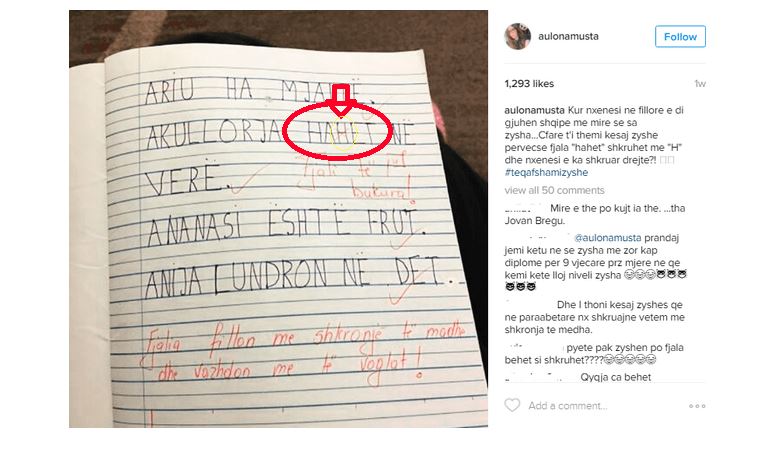 ARIU HA MJALTË.
AKULLORJA HAHET NË
VERË.
Fjali të
bukura!
ANANASI ËSHTË FRUT.
ANIJA LUNDRON NË DET.
Fjalia fillon me shkronjë të madhe
dhe vazhdon me të voglat!
aulonamusta
Follow
1,293 likes
1w
aulonamusta Kur nxenesi ne fillore e di
gjuhen shqipe me mire se sa
zysha...Cfare t'i themi kesaj zyshe
pervecse fjala "hahet" shkruhet me "H"
dhe nxenesi e ka shkruar drejte?!
#teqafshamizyshe
view all 50 comments
Mire e the po kujt ia the. ...tha
Jovan Bregu.
@aulonamusta prandaj
jemi ketu ne se zysha me zor kap
diplome per 9 vjecare prz mjere ne qe
kemi kete lloj niveli zysha 😂😂😂😈😈😈
😈😈😈
Dhe I thoni kesaj zyshes qe
ne paraabetare nx shkruajne vetem me
shkronja te medha.
pyete pak zyshen po fjala
behet si shkruhet????😂😂😂😂😂
Qyqja ca behet
Add a comment...